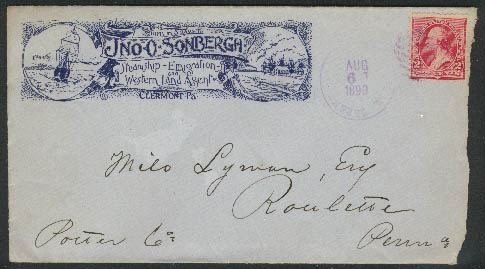 JNO-O-SONBERGH
Steamship-Emigration-
and
Western Land Agent
CLERMONT PA.
AUG
6
1890
Milo Lyman, Esq
Roulette
Potter Co.
Penna